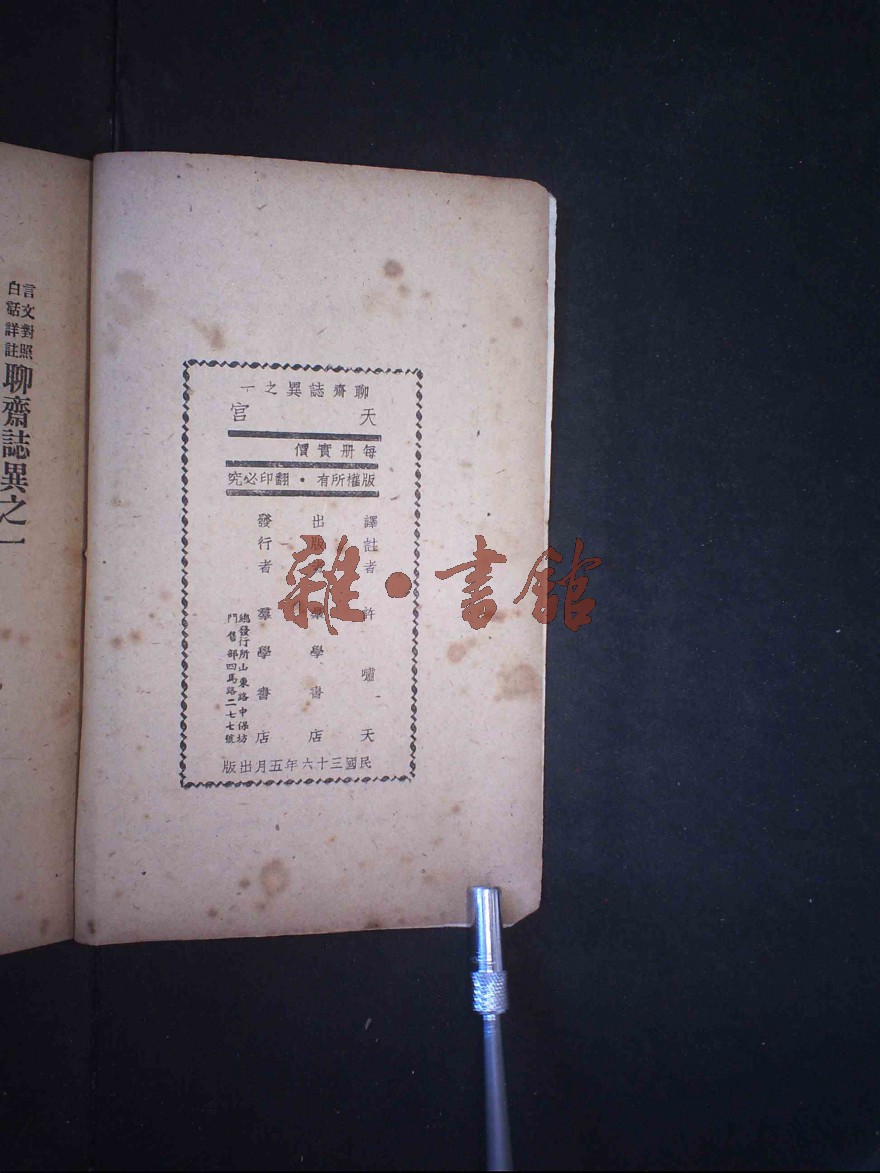 聊齋誌異之一
天宮
每册實價
版權所有・翻印必究
譯註者 許嘯天
出版者 羣學書店
發行者 羣學書店
總發行所山東路中保坊
門售部四馬路二七七號
民國三十六年五月出版
言文對照
白話詳註
聊齋誌異之一
雜・書館